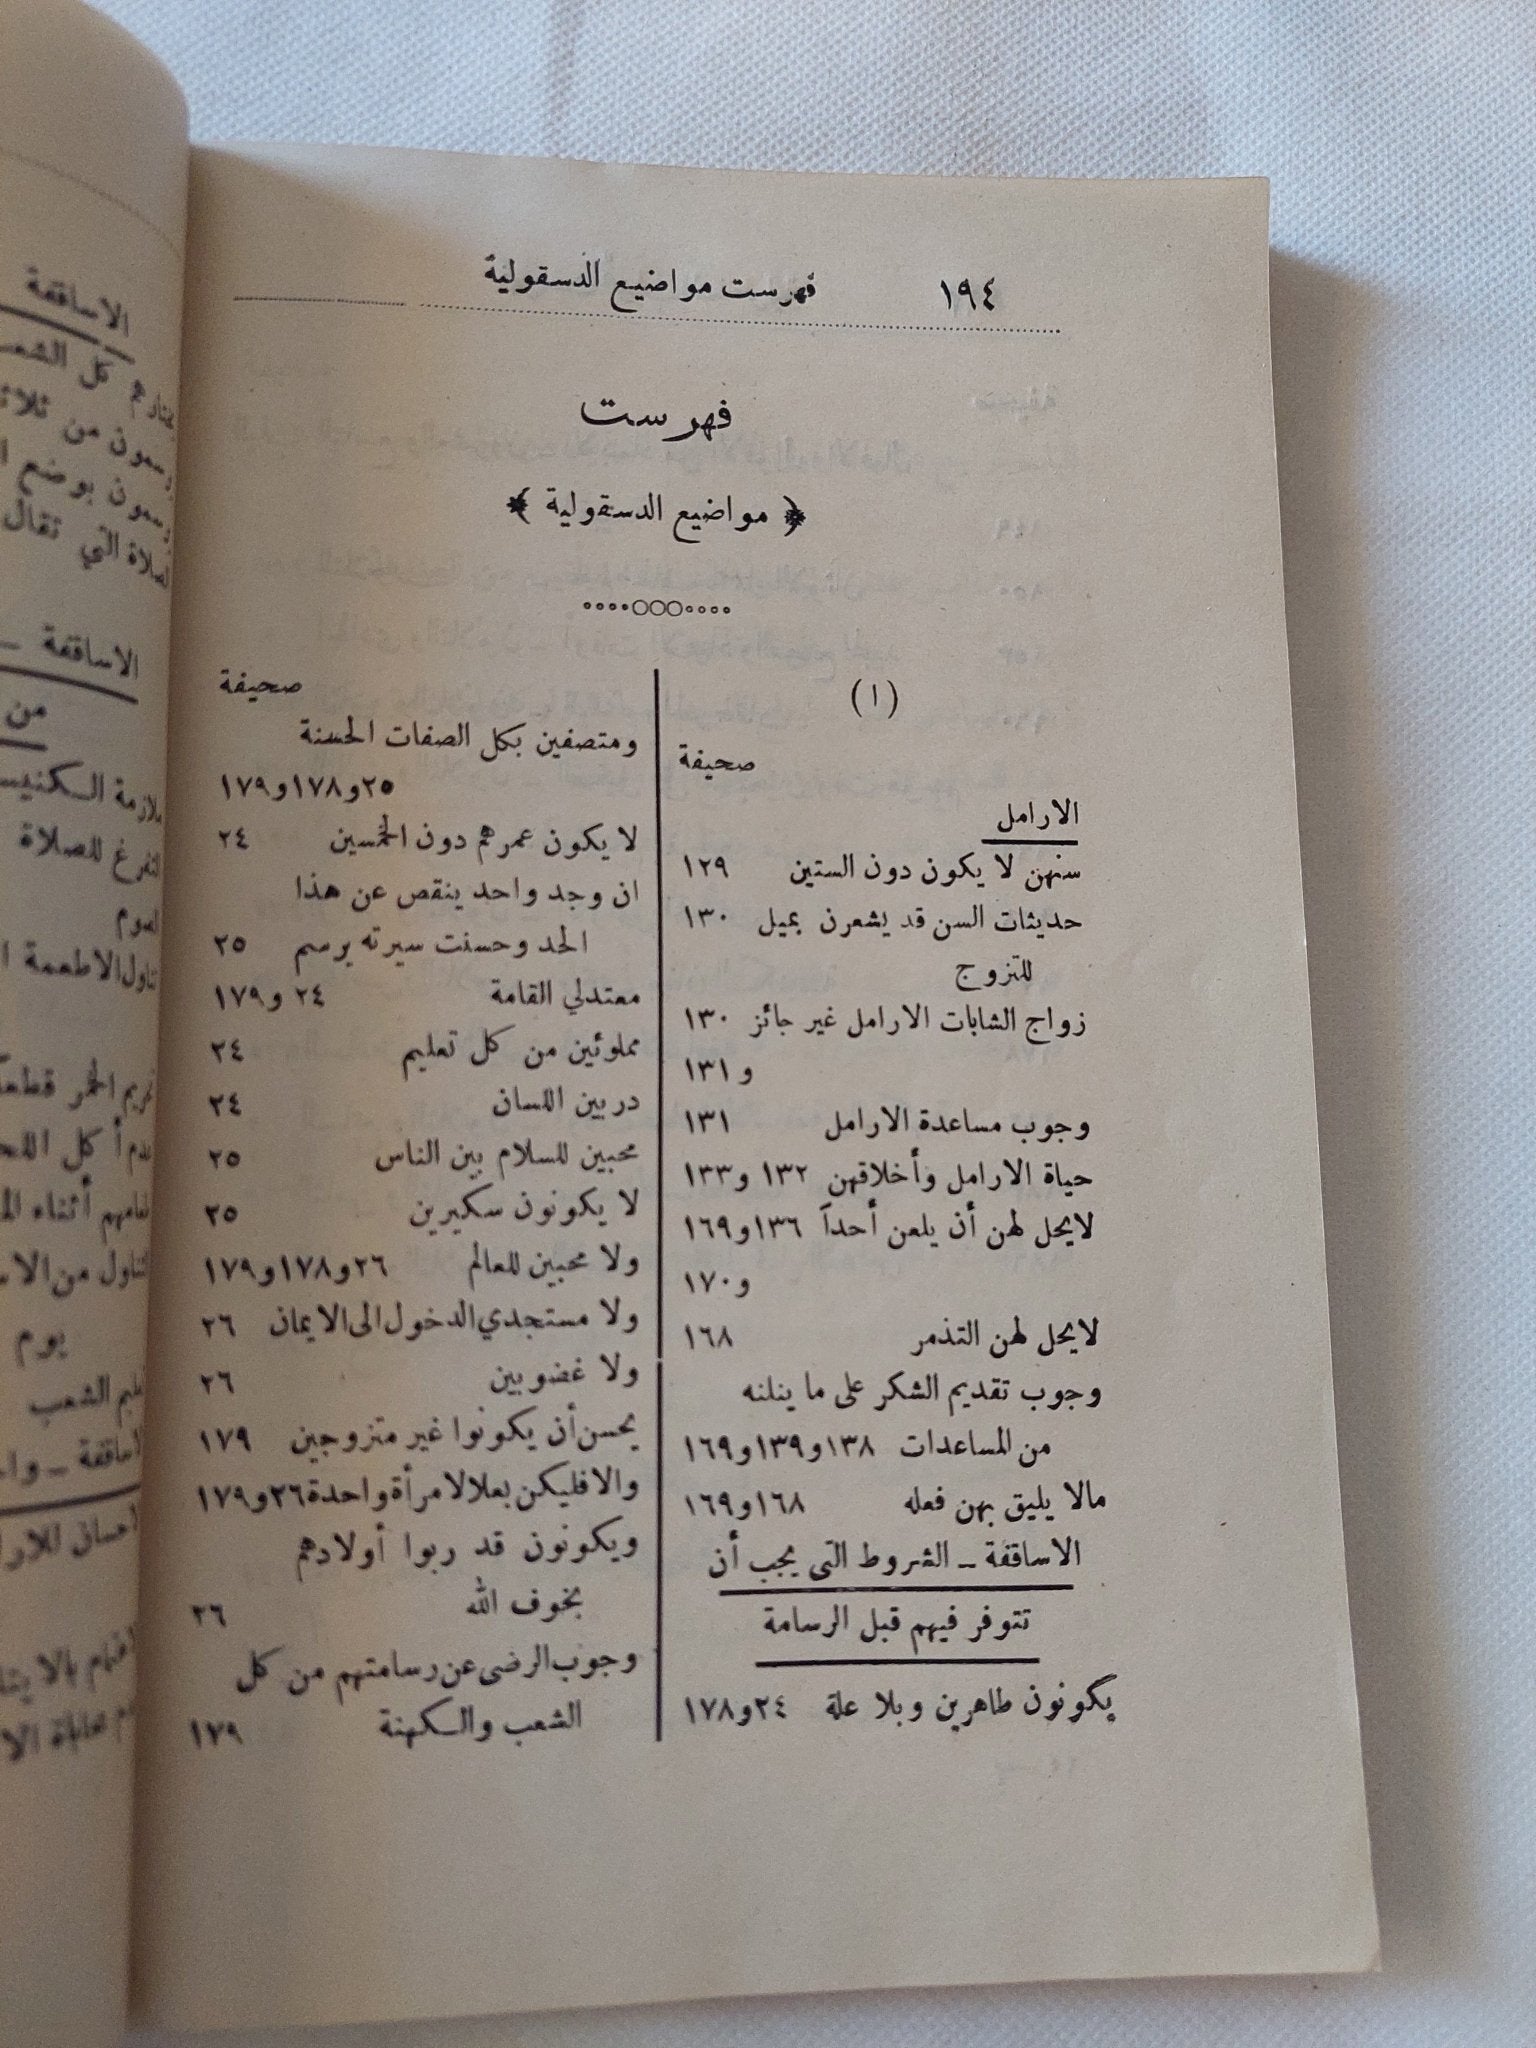 ١٩٤
فهرست مواضيع الدسقولية
فهرست
﴿ مواضيع الدسقولية ﴾
(١)
صحيفة
الارامل
سنهن لا يكون دون الستين ١٢٩
حديثات السن قد يشعرن بميل ١٣٠
للتزوج
زواج الشابات الارامل غير جائز ١٣٠
و ١٣١
وجوب مساعدة الارامل ١٣١
حياة الارامل وأخلاقهن ١٣٢ و١٣٣
لايحل لهن أن يلعن أحداً ١٣٦ و١٦٩
و ١٧٠
لايحل لهن التذمر ١٦٨
وجوب تقديم الشكر على ما ينلنه
من المساعدات ١٣٨ و١٣٩ و١٦٩
مالا يليق بهن فعله ١٦٨ و١٦٩
الاساقفة ــ الشروط التى يجب أن
تتوفر فيهم قبل الرسامة
يكونون طاهرين وبلا علة ٢٤ و١٧٨
صحيفة
ومتصفين بكل الصفات الحسنة
٢٥ و١٧٨ و١٧٩
لا يكون عمرهم دون الخمسين ٢٤
ان وجد واحد ينقص عن هذا
الحد وحسنت سيرته يرسم ٢٥
معتدلي القامة ٢٤ و١٧٩
مملوئين من كل تعليم ٢٤
دربين اللسان ٢٤
محبين للسلام بين الناس ٢٥
لا يكونون سكيرين ٢٥
ولا محبين للعالم ٢٦ و١٧٨ و١٧٩
ولا مستجدي الدخول الى الايمان ٢٦
ولا غضوبين ٢٦
يحسن أن يكونوا غير متزوجين ١٧٩
والا فليكن بعلا لامرأة واحدة ٢٦ و١٧٩
ويكونون قد ربوا أولادهم
بخوف الله ٢٦
وجوب الرضى عن رسامتهم من كل
الشعب والكهنة ١٧٩
الاساقفة
كل الشعب
من
بوضع
الصلاة التي تقال
الاساقفة ــ
من
ملازمة الكنيسة
التفرغ للصلاة
الصوم
تناول الاطعمة
الخمر
كل
أثناء
يوم
الشعب